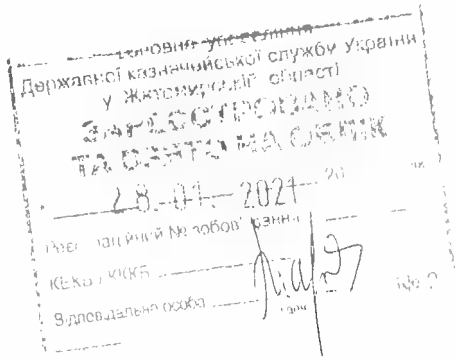 Головне управління
Державної казначейської службу України
у Житомирській області
ЗАРЕЄСТРОВАНО
ТА ВЗЯТО НА ОБЛІК
28-01-2021 20
Реєстраційний № зобов'язання
КЕКВ / ККК
Відповідальна особа
№ 2